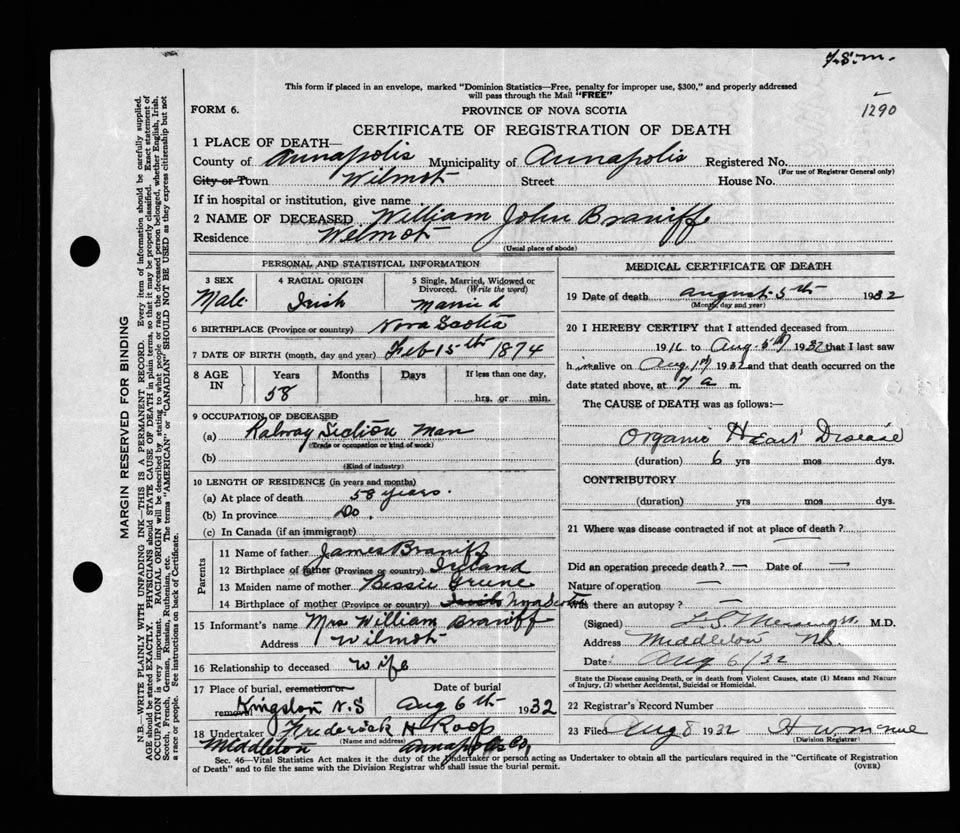 F.S.M.
This form if placed in an envelope, marked "Dominion Statistics—Free, penalty for improper use, $300," and properly addressed
will pass through the Mail "FREE"
1290
FORM 6.
PROVINCE OF NOVA SCOTIA
CERTIFICATE OF REGISTRATION OF DEATH
1 PLACE OF DEATH—
County of Annapolis Municipality of Annapolis Registered No.
(For use of Registrar General only)
City or Town Wilmot Street House No.
If in hospital or institution, give name
2 NAME OF DECEASED William John Braniff
Residence Wilmot
(Usual place of abode)
PERSONAL AND STATISTICAL INFORMATION
3 SEX Male
4 RACIAL ORIGIN Irish
5 Single, Married, Widowed or Divorced. (Write the word) Married
6 BIRTHPLACE (Province or country) Nova Scotia
7 DATE OF BIRTH (month, day and year) Feb 15th 1874
8 AGE IN Years Months Days If less than one day,
58 hrs. or min.
9 OCCUPATION OF DECEASED
(a) Ralway Section Man
(Trade or occupation or kind of work)
(b)
(Kind of industry)
10 LENGTH OF RESIDENCE (in years and months)
(a) At place of death 58 years.
(b) In province Do.
(c) In Canada (if an immigrant)
Parents
11 Name of father James Braniff
12 Birthplace of father (Province or country) Ireland
13 Maiden name of mother Bessie Greene
14 Birthplace of mother (Province or country) Nova Scotia
15 Informant's name Mrs William Braniff
Address Wilmot
16 Relationship to deceased wife
17 Place of burial, cremation or removal Kingston N.S
Date of burial Aug 6th 1932
18 Undertaker Frederick H Roop
(Name and address)
Middleton Annapolis Co,
MEDICAL CERTIFICATE OF DEATH
19 Date of death August 5th 1932
(Month, day and year)
20 I HEREBY CERTIFY that I attended deceased from
1916 to Aug. 5th 1932 that I last saw
him alive on Aug. 1st 1932 and that death occurred on the
date stated above, at 7 a m.
The CAUSE of DEATH was as follows:—
Organic Heart Disease
(duration) 6 yrs mos dys.
CONTRIBUTORY
(duration) yrs mos dys.
21 Where was disease contracted if not at place of death?
Did an operation precede death? — Date of —
Nature of operation —
Was there an autopsy? —
(Signed) M.D.
Address Middleton NS
Date: Aug 6/32
State the Disease causing Death, or in death from Violent Causes, state (1) Means and Nature
of Injury, (2) whether Accidental, Suicidal or Homicidal.
22 Registrar's Record Number
23 Filed Aug 8 1932 H W
(Division Registrar)
Sec. 46—Vital Statistics Act makes it the duty of the Undertaker or person acting as Undertaker to obtain all the particulars required in the "Certificate of Registration
of Death" and to file the same with the Division Registrar who shall issue the burial permit.
(OVER)
MARGIN RESERVED FOR BINDING
N.B.—WRITE PLAINLY WITH UNFADING INK—THIS IS A PERMANENT RECORD. Every item of information should be carefully supplied.
AGE should be stated EXACTLY. PHYSICIANS should STATE CAUSE OF DEATH in plain terms, so that it may be properly classified. Exact statement of
OCCUPATION is very important. RACIAL ORIGIN will be described by stating to what people or race the deceased person belonged, whether English, Irish,
Scotch, French, German, Russian, Ruthenian, etc. The terms "AMERICAN" or "CANADIAN" SHOULD NOT BE USED as they express citizenship but not
a race or people. See instructions on back of Certificate.